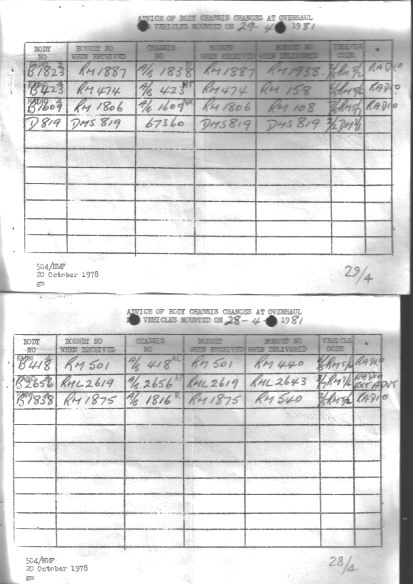 ADVICE OF BODY CHASSIS CHANGES AT OVERHAUL
VEHICLES MOUNTED ON 29-4 1981
BODY NO BONNET NO WHEN RECEIVED CHASSIS NO BONNET WHEN RECEIVED BONNET NO WHEN DELIVERED VEHICLE CODE *
B1823 RM1887 A/S 1838 RM1887 RM1938 RADIO
B423 RM474 A/S 423 RM474 RM 158 RADIO
B1609 RM1806 A/S 1609 NX RM1806 RM 108 RADIO
D819 DMS819 67360 DMS819 DMS819
504/HWF
20 October 1978
gm
29/4
ADVICE OF BODY CHASSIS CHANGES AT OVERHAUL
VEHICLES MOUNTED ON 28-4- 1981
BODY NO BONNET NO WHEN RECEIVED CHASSIS NO BONNET WHEN RECEIVED BONNET NO WHEN DELIVERED VEHICLE CODE *
B418 RM501 A/S 418 AL RM501 RM440 RADIO
B2656 RML2619 A/S 2656 RML2619 RML2643 RADIO
B1838 RM1875 A/S 1816 R RM1875 RM540 RADIO
504/HWF
20 October 1978
gm
28/4